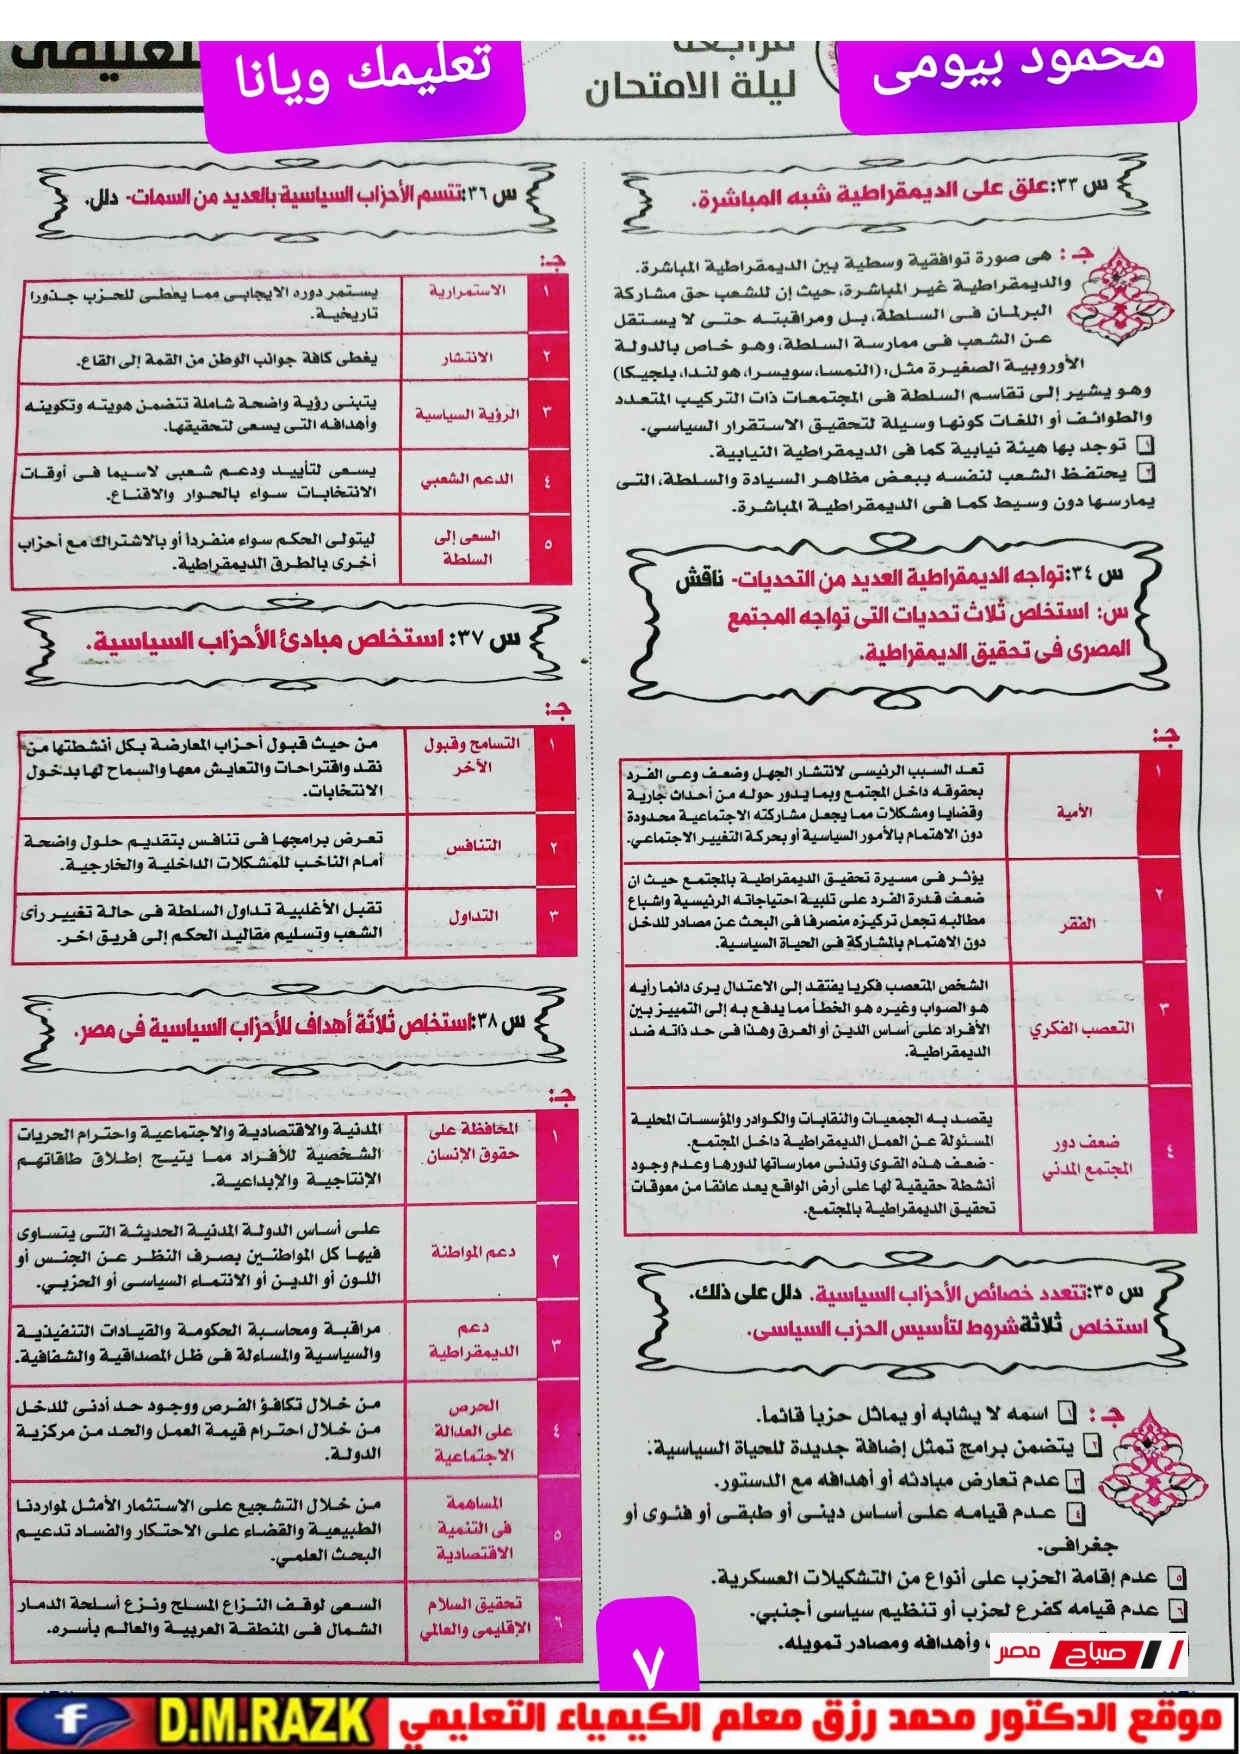 محمود بيومى
تعليمك ويانا
ليلة الامتحان
س ٣٣: علق على الديمقراطية شبه المباشرة.
جـ: هى صورة توافقية وسطية بين الديمقراطية المباشرة.
والديمقراطية غير المباشرة، حيث إن للشعب حق مشاركة
البرلمان فى السلطة، بل ومراقبته حتى لا يستقل
عن الشعب فى ممارسة السلطة، وهو خاص بالدولة
الأوروبية الصغيرة مثل: (النمسا، سويسرا، هولندا، بلجيكا)
وهو يشير إلى تقاسم السلطة فى المجتمعات ذات التركيب المتعدد
والطوائف أو اللغات كونها وسيلة لتحقيق الاستقرار السياسي.
١ توجد بها هيئة نيابية كما فى الديمقراطية النيابية.
٢ يحتفظ الشعب لنفسه ببعض مظاهر السيادة والسلطة، التى
يمارسها دون وسيط كما فى الديمقراطية المباشرة.
س ٣٤: تواجه الديمقراطية العديد من التحديات- ناقش
س: استخلص ثلاث تحديات التى تواجه المجتمع
المصرى فى تحقيق الديمقراطية.
جـ:
١ الأمية تعد السبب الرئيسى لانتشار الجهل وضعف وعى الفرد
بحقوقه داخل المجتمع وبما يدور حوله من أحداث جارية
وقضايا ومشكلات مما يجعل مشاركته الاجتماعية محدودة
دون الاهتمام بالأمور السياسية أو بحركة التغيير الاجتماعى.
٢ الفقر يؤثر فى مسيرة تحقيق الديمقراطية بالمجتمع حيث ان
ضعف قدرة الفرد على تلبية احتياجاته الرئيسية واشباع
مطالبه تجعل تركيزه منصرفا فى البحث عن مصادر للدخل
دون الاهتمام بالمشاركة فى الحياة السياسية.
٣ التعصب الفكري الشخص المتعصب فكريا يفتقد إلى الاعتدال يرى دائما رأيه
هو الصواب وغيره هو الخطأ مما يدفع به إلى التمييز بين
الأفراد على أساس الدين أو العرق وهذا فى حد ذاته ضد
الديمقراطية.
٤ ضعف دور المجتمع المدني يقصد به الجمعيات والنقابات والكوادر والمؤسسات المحلية
المسئولة عن العمل الديمقراطية داخل المجتمع.
- ضعف هذه القوى وتدنى ممارساتها لدورها وعدم وجود
أنشطة حقيقية لها على أرض الواقع يعد عائقا من معوقات
تحقيق الديمقراطية بالمجتمع.
س ٣٥: تتعدد خصائص الأحزاب السياسية. دلل على ذلك.
استخلص ثلاثة شروط لتأسيس الحزب السياسى.
جـ: ١ اسمه لا يشابه أو يماثل حزبا قائما.
٢ يتضمن برامج تمثل إضافة جديدة للحياة السياسية.
٣ عدم تعارض مبادئه أو أهدافه مع الدستور.
٤ عدم قيامه على أساس دينى أو طبقى أو فئوى أو
جغرافى.
٥ عدم إقامة الحزب على أنواع من التشكيلات العسكرية.
٦ عدم قيامه كفرع لحزب أو تنظيم سياسى أجنبي.
وأهدافه ومصادر تمويله.
س ٣٦: تتسم الأحزاب السياسية بالعديد من السمات- دلل.
جـ:
١ الاستمرارية يستمر دوره الايجابى مما يعطى للحزب جذورا
تاريخية.
٢ الانتشار يغطى كافة جوانب الوطن من القمة إلى القاع.
٣ الرؤية السياسية يتبنى رؤية واضحة شاملة تتضمن هويته وتكوينه
وأهدافه التى يسعى لتحقيقها.
٤ الدعم الشعبي يسعى لتأييد ودعم شعبى لاسيما فى أوقات
الانتخابات سواء بالحوار والاقناع.
٥ السعى إلى السلطة ليتولى الحكم سواء منفرداً أو بالاشتراك مع أحزاب
أخرى بالطرق الديمقراطية.
س ٣٧: استخلص مبادئ الأحزاب السياسية.
جـ:
١ التسامح وقبول الأخر من حيث قبول أحزاب المعارضة بكل أنشطتها من
نقد واقتراحات والتعايش معها والسماح لها بدخول
الانتخابات.
٢ التنافس تعرض برامجها فى تنافس بتقديم حلول واضحة
أمام الناخب للمشكلات الداخلية والخارجية.
٣ التداول تقبل الأغلبية تداول السلطة فى حالة تغيير رأى
الشعب وتسليم مقاليد الحكم إلى فريق اخر.
س ٣٨: استخلص ثلاثة أهداف للأحزاب السياسية فى مصر.
جـ:
١ المحافظة على حقوق الإنسان المدنية والاقتصادية والاجتماعية واحترام الحريات
الشخصية للأفراد مما يتيح إطلاق طاقاتهم
الإنتاجية والإبداعية.
٢ دعم المواطنة على أساس الدولة المدنية الحديثة التى يتساوى
فيها كل المواطنين بصرف النظر عن الجنس أو
اللون أو الدين أو الانتماء السياسى أو الحزبي.
٣ دعم الديمقراطية مراقبة ومحاسبة الحكومة والقيادات التنفيذية
والسياسية والمساءلة فى ظل المصداقية والشفافية.
٤ الحرص على العدالة الاجتماعية من خلال تكافؤ الفرص ووجود حد أدنى للدخل
من خلال احترام قيمة العمل والحد من مركزية
الدولة.
٥ المساهمة فى التنمية الاقتصادية من خلال التشجيع على الاستثمار الأمثل لمواردنا
الطبيعية والقضاء على الاحتكار والفساد تدعيم
البحث العلمي.
٦ تحقيق السلام الإقليمى والعالمي السعى لوقف النزاع المسلح ونزع أسلحة الدمار
الشمال فى المنطقة العربية والعالم بأسره.
٧
صباح مصر
موقع الدكتور محمد رزق معلم الكيمياء التعليمي D.M.RAZK f